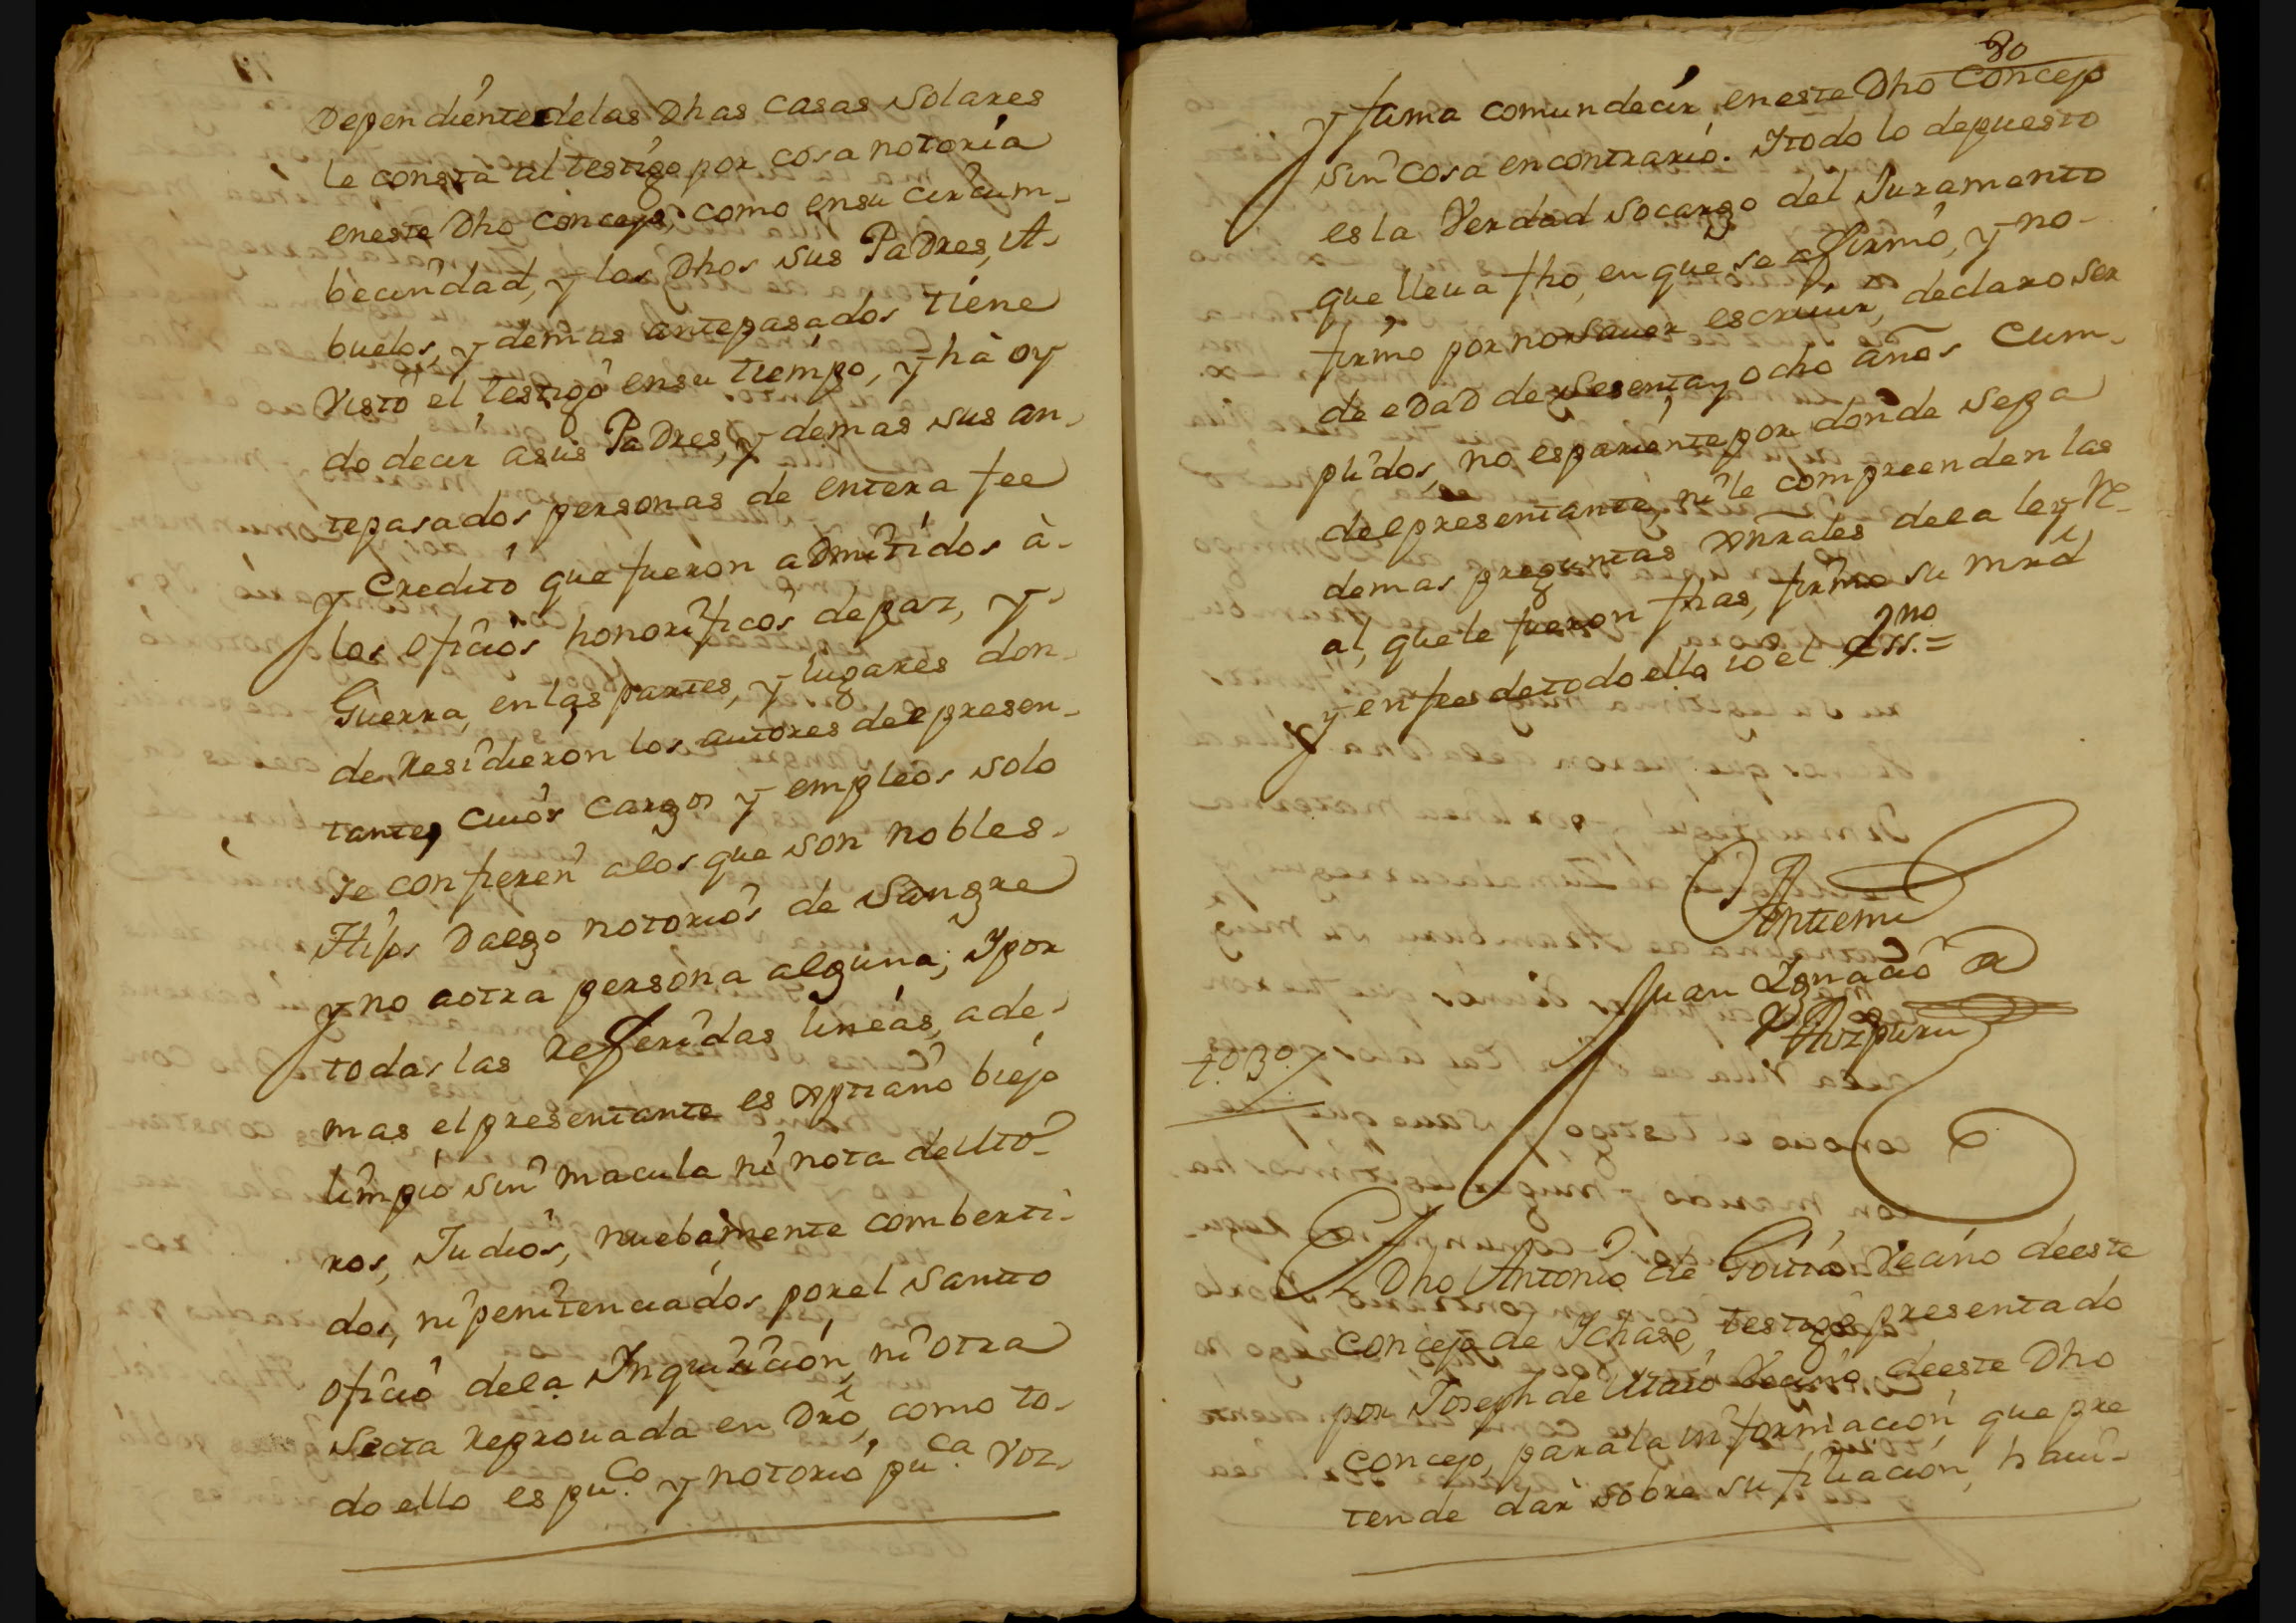 Dependiente delas Dhas casas Solares
le consta al testigo por cosa notoria
eneste Dho concejo, como ensu circum-
becindad, y los Dhos sus Padres, A-
buelos, y demas antepasados tiene
Visto el testigo ensu tiempo, y hà oy
do decir asus Padres, y demas sus an-
tepasados personas de entera fee
y Credito que fueron admitidos à-
los oficios honorificos de paz, y-
Guerra, en las partes, y lugares don-
de Residieron los autores del presen-
tante, cuios cargos y empleos solo
se confieren alos que son nobles-
Hijos Dalgo notorios de Sangre
y no aotra persona alguna; Ipor
todas las Referidas lineas, ade-
mas el presentante es xptiano biejo
limpio sin macula ni nota de Mo-
ros, Judios, nuebamente comberti-
dos, ni penitenciados por el Santo
oficio dela Inquisicion, ni otra
Secta Reprouada en Dro, como to-
do ello es pu.co y notorio pu.ca Voz,
80
y fama comun decir, eneste Dho Concejo
sin cosa encontrario. Itodo lo depuesto
es la Verdad socargo del Juramento
que lleua fho, en que se afirmò, y no-
firmo por no sauer escriuir, declaro ser
de edad de sesenta y ocho años Cum-
plidos, no es pariente por donde sepa
del presentante, ni le compreenden las
demas preguntas xnrales dela ley R-
al, que le fueron fhas, firmo su mrd
y enfee de todo ello io el essno.=
Antemi
Juan Ignacio de
Aizpuru
t.o 3.o
El Dho Antonio de Goitia Vecino deeste
concejo de Ichaso, testigo presentado
por Joseph de Utaio Vecino deeste Dho
concejo, para la informacion que pre
tende dar sobre su filiacion, hauî-